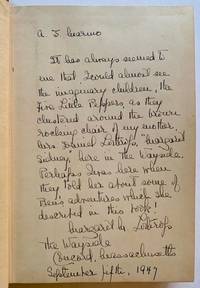 It has always seemed to
me that I could almost see
the imaginary children, the
Five Little Peppers, as they
clustered around the brown
rocking chair of my mother,
Mrs. Lothrop, "Margaret
Sidney," here in the Wayside.
Perhaps it was here when
they told her about some of
Ben's adventures which she
described in this book!
Margaret M. Lothrop
The Wayside
Concord, Massachusetts
September fifth, 1947